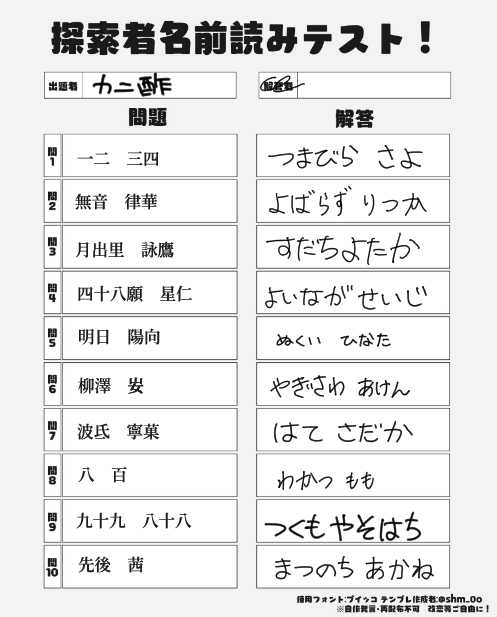 探索者名前読みテスト！
出題者 カニ酢
解答者
問題 解答
問1 一二 三四 つまびら さよ
問2 無音 律華 よばらず りつか
問3 月出里 詠鷹 すだち よたか
問4 四十八願 星仁 よいながせいじ
問5 明日 陽向 ぬくい ひなた
問6 柳澤 妟 やぎさわ あけん
問7 波氐 寧菓 はて さだか
問8 八 百 わかつ もも
問9 九十九 八十八 つくも やそはち
問10 先後 茜 まつのち あかね
使用フォント:ブイッコ テンプレ作成者:@shm_0o
※自作発言・再配布不可 改変等ご自由に！